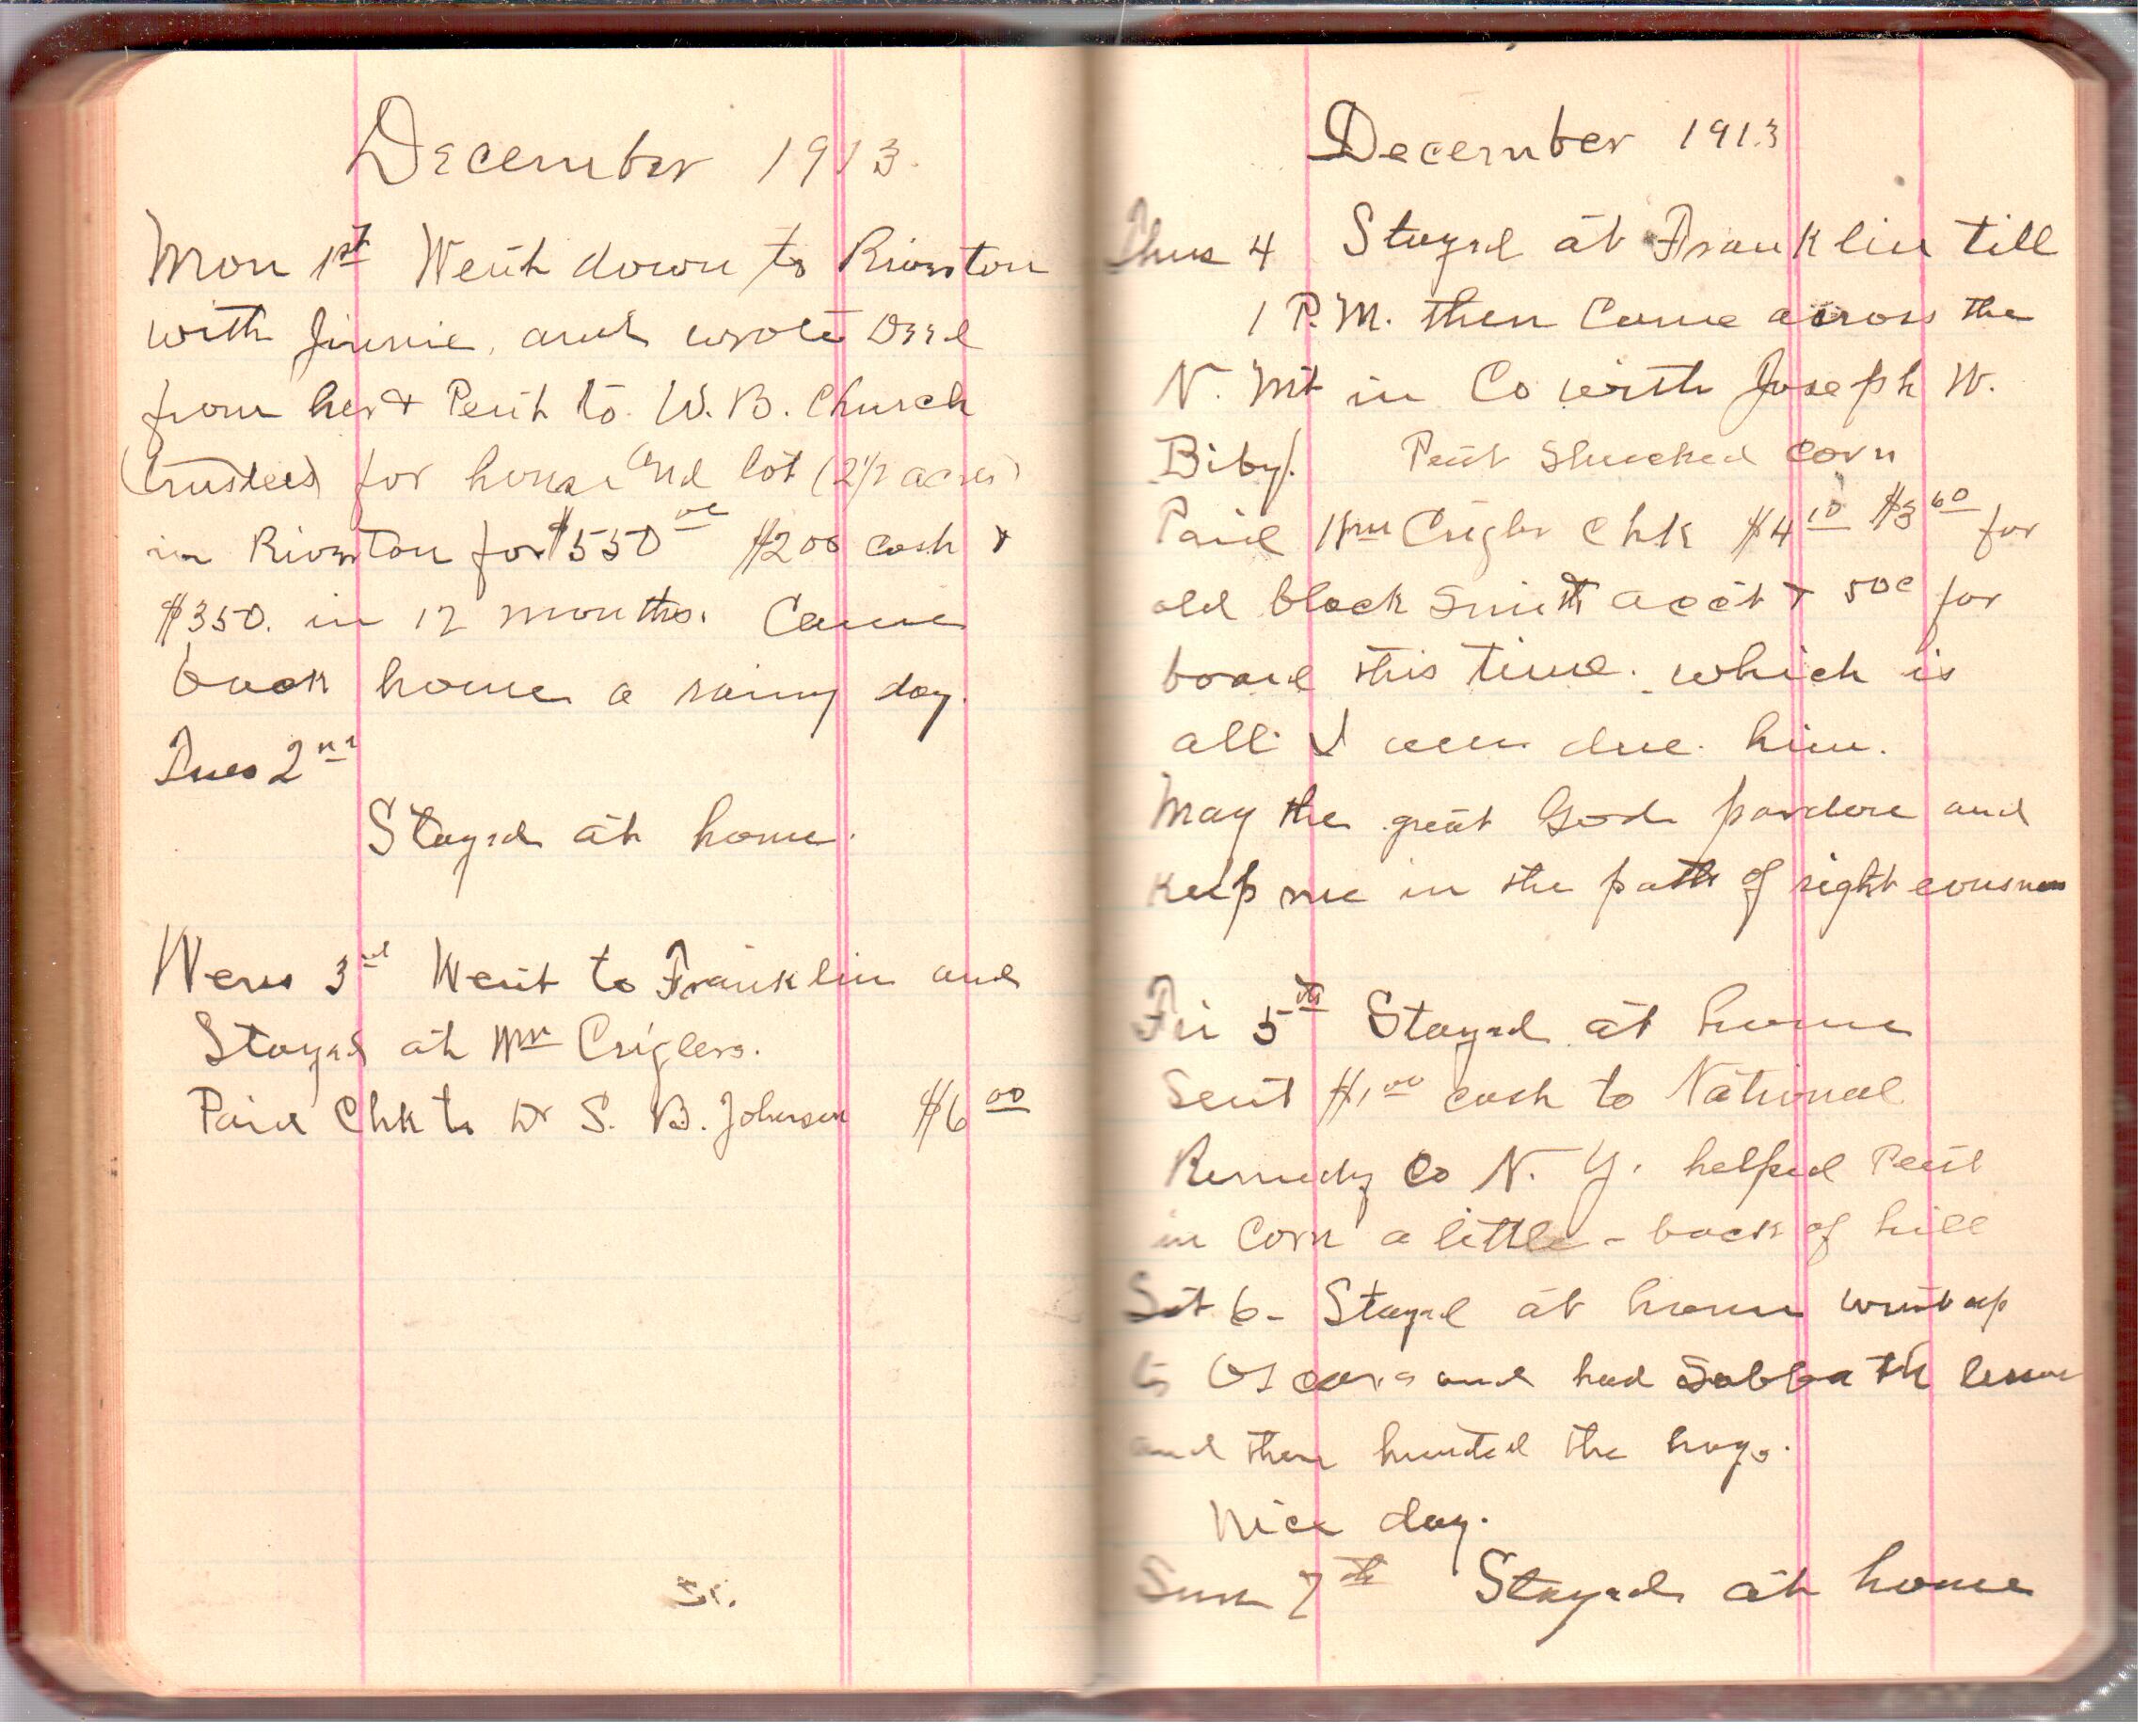 December 1913.
Mon 1st Went down to Riverton
with Jinnie, and wrote Deed
from her & Pent to W. B. Church
(trustees) for house and lot (2 1/2 acres)
in Riverton for $550 00 $200 cash &
$350. in 12 months. Came
back home a rainy day.
Tues 2nd
Stayed at home.
Wens 3rd Went to Franklin and
Stayed at Wm Criglers.
Paid Chk to Dr S. B. Johnson $6 00
December 1913
Thus 4 Stayed at Franklin till
1 P.M. then Came across the
N. Mt in Co with Joseph W.
Biby. Pent Shucked corn
Paid Wm Crigler Chk $4 10 $3 60 for
old black Smith acct & 50c for
board this time. which is
all I am due him.
May the great God pardon and
keep me in the path of righteousness
Fri 5th Stayed at home
Sent $1 00 cash to National
Remedy Co N. Y. helped Pent
in Corn a little - back of hill
Sat 6 - Stayed at home went up
to Oscars and had Sabbath lesson
and then hunted the hogs.
Nice day.
Sun 7th Stayed at home